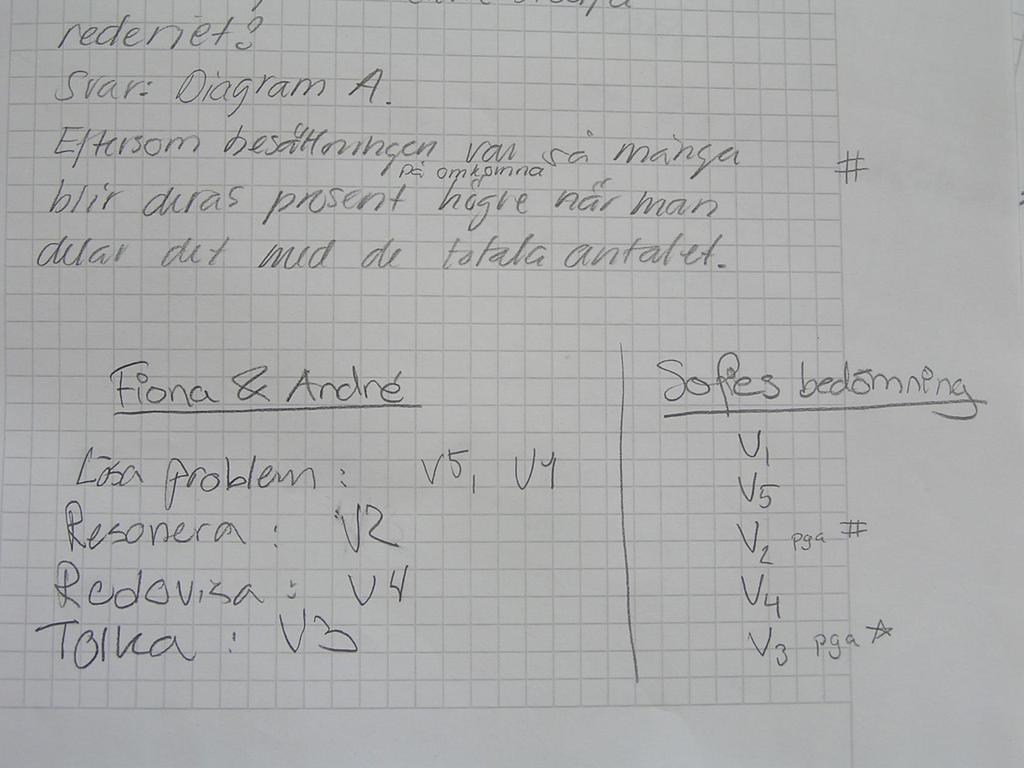 rederiet?
Svar: Diagram A.
Eftersom besättningen var så många #
på omkomna
blir deras prosent högre när man
delar det med de totala antalet.
Fiona & André
Lösa problem: V5, V1
Resonera: V2
Redovisa: V4
Tolka: V3
Sofies bedömning
V1
V5
V2 pga #
V4
V3 pga ☆